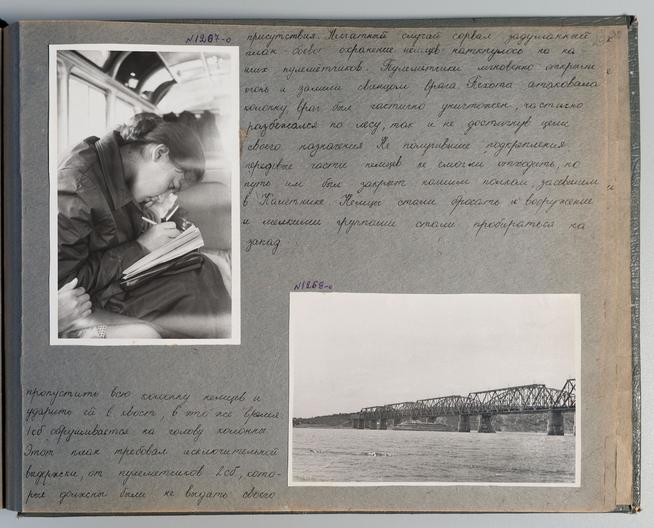 N1267-о
пропустить всю колонну немцев и
ударить ей в хвост, в это же время
1сб обрушивается на голову колонны.
Этот план требовал исключительной
выдержки, от пулеметчиков 2сб, кото-
рые должны были не выдать своего
присутствия. Нештатный случай сорвал задуманный
план боевое охранение немцев наткнулось на на-
ших пулемётчиков. Пулеметчики мгновенно открыли
огонь и залили свинцом врага. Пехота атаковала
колонну, враг был частично уничтожен, частично
разбежался по лесу, так и не достигнув цели
своего назначения. Не получившие подкрепления
передовые части немцев не смогли отходить, но
путь им был закрыт нашим полком, засевшим
в Каменике. Немцы стали бросать вооружение
и мелкими группами стали пробираться на
запад
N1268-о